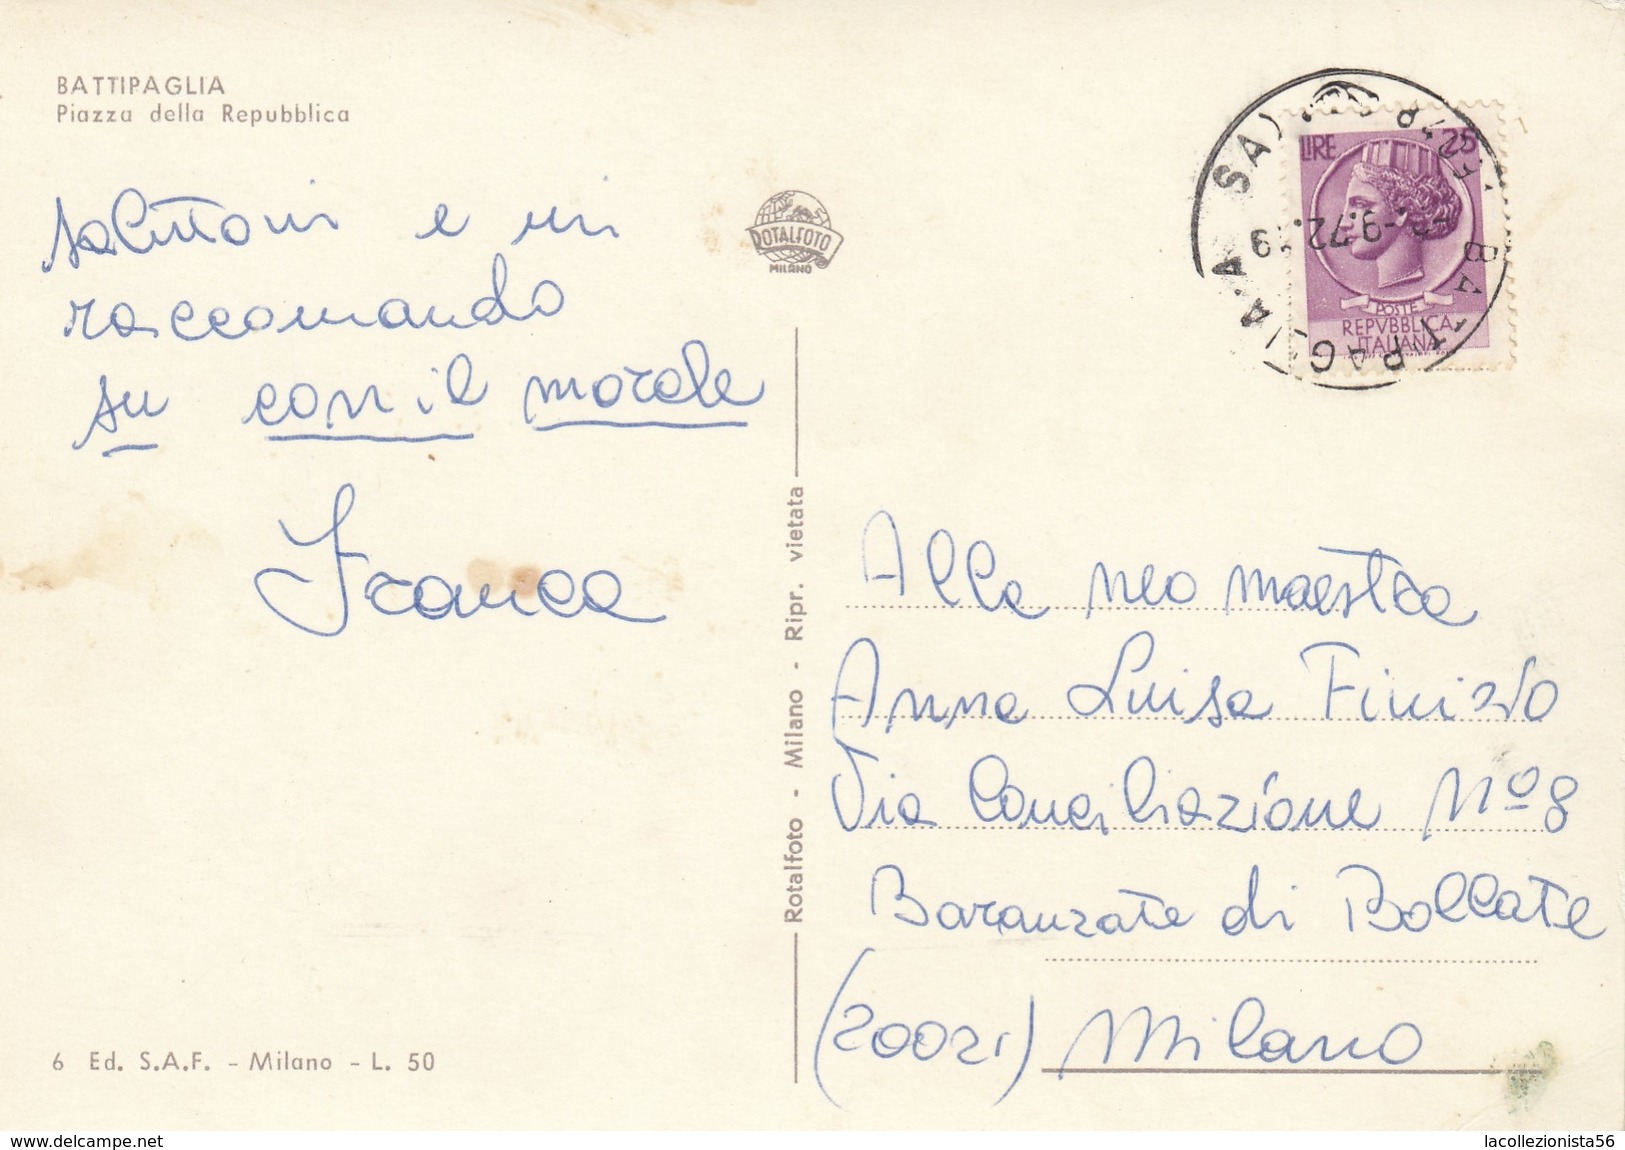 BATTIPAGLIA
Piazza della Repubblica
salutoni e mi
raccomando
su con il morale
Franca
ROTALFOTO
MILANO
Rotalfoto - Milano - Ripr. vietata
LIRE 25
POSTE
REPVBBLICA
ITALIANA
-9.72
19
Alla neo maestra
Anna Luisa Finizio
Via Conciliazione Nº 8
Baranzate di Bollate
(20021) Milano
6 Ed. S.A.F. - Milano - L. 50
www.delcampe.net
lacollezionista56